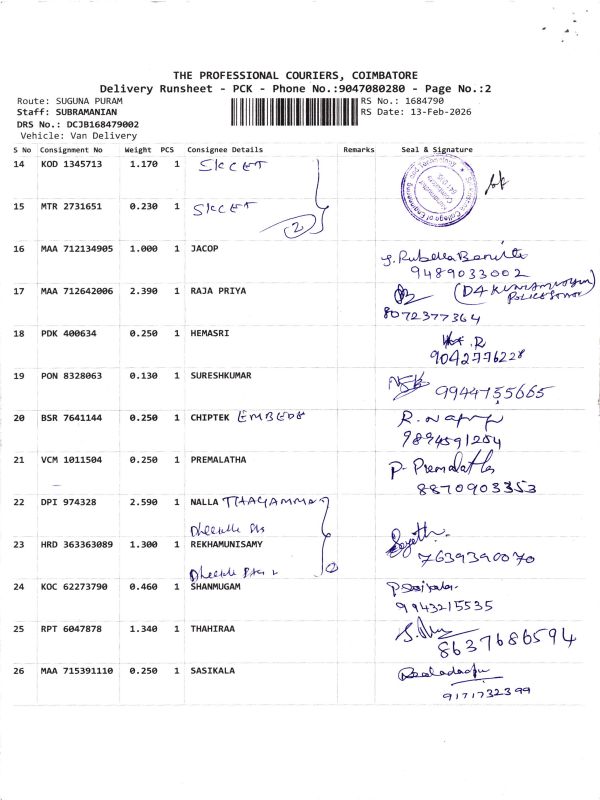 THE PROFESSIONAL COURIERS, COIMBATORE
Delivery Runsheet - PCK - Phone No.:9047080280 - Page No.:2
Route: SUGUNA PURAM RS No.: 1684790
Staff: SUBRAMANIAN RS Date: 13-Feb-2026
DRS No.: DCJB168479002
Vehicle: Van Delivery
S No Consignment No Weight PCS Consignee Details Remarks Seal & Signature
14 KOD 1345713 1.170 1 SKCET
15 MTR 2731651 0.230 1 SKCET
2
16 MAA 712134905 1.000 1 JACOP
9489033002
17 MAA 712642006 2.390 1 RAJA PRIYA
8072377364
18 PDK 400634 0.250 1 HEMASRI
9042776228
19 PON 8328063 0.130 1 SURESHKUMAR 9944755665
20 BSR 7641144 0.250 1 CHIPTEK EMBEDE
9894591254
21 VCM 1011504 0.250 1 PREMALATHA P. Premalatha
8870903353
22 DPI 974328 2.590 1 NALLA THAYAMMAY
23 HRD 363363089 1.300 1 REKHAMUNISAMY 7639390070
24 KOC 62273790 0.460 1 SHANMUGAM
9943215535
25 RPT 6047878 1.340 1 THAHIRAA
8637686594
26 MAA 715391110 0.250 1 SASIKALA
9171732399